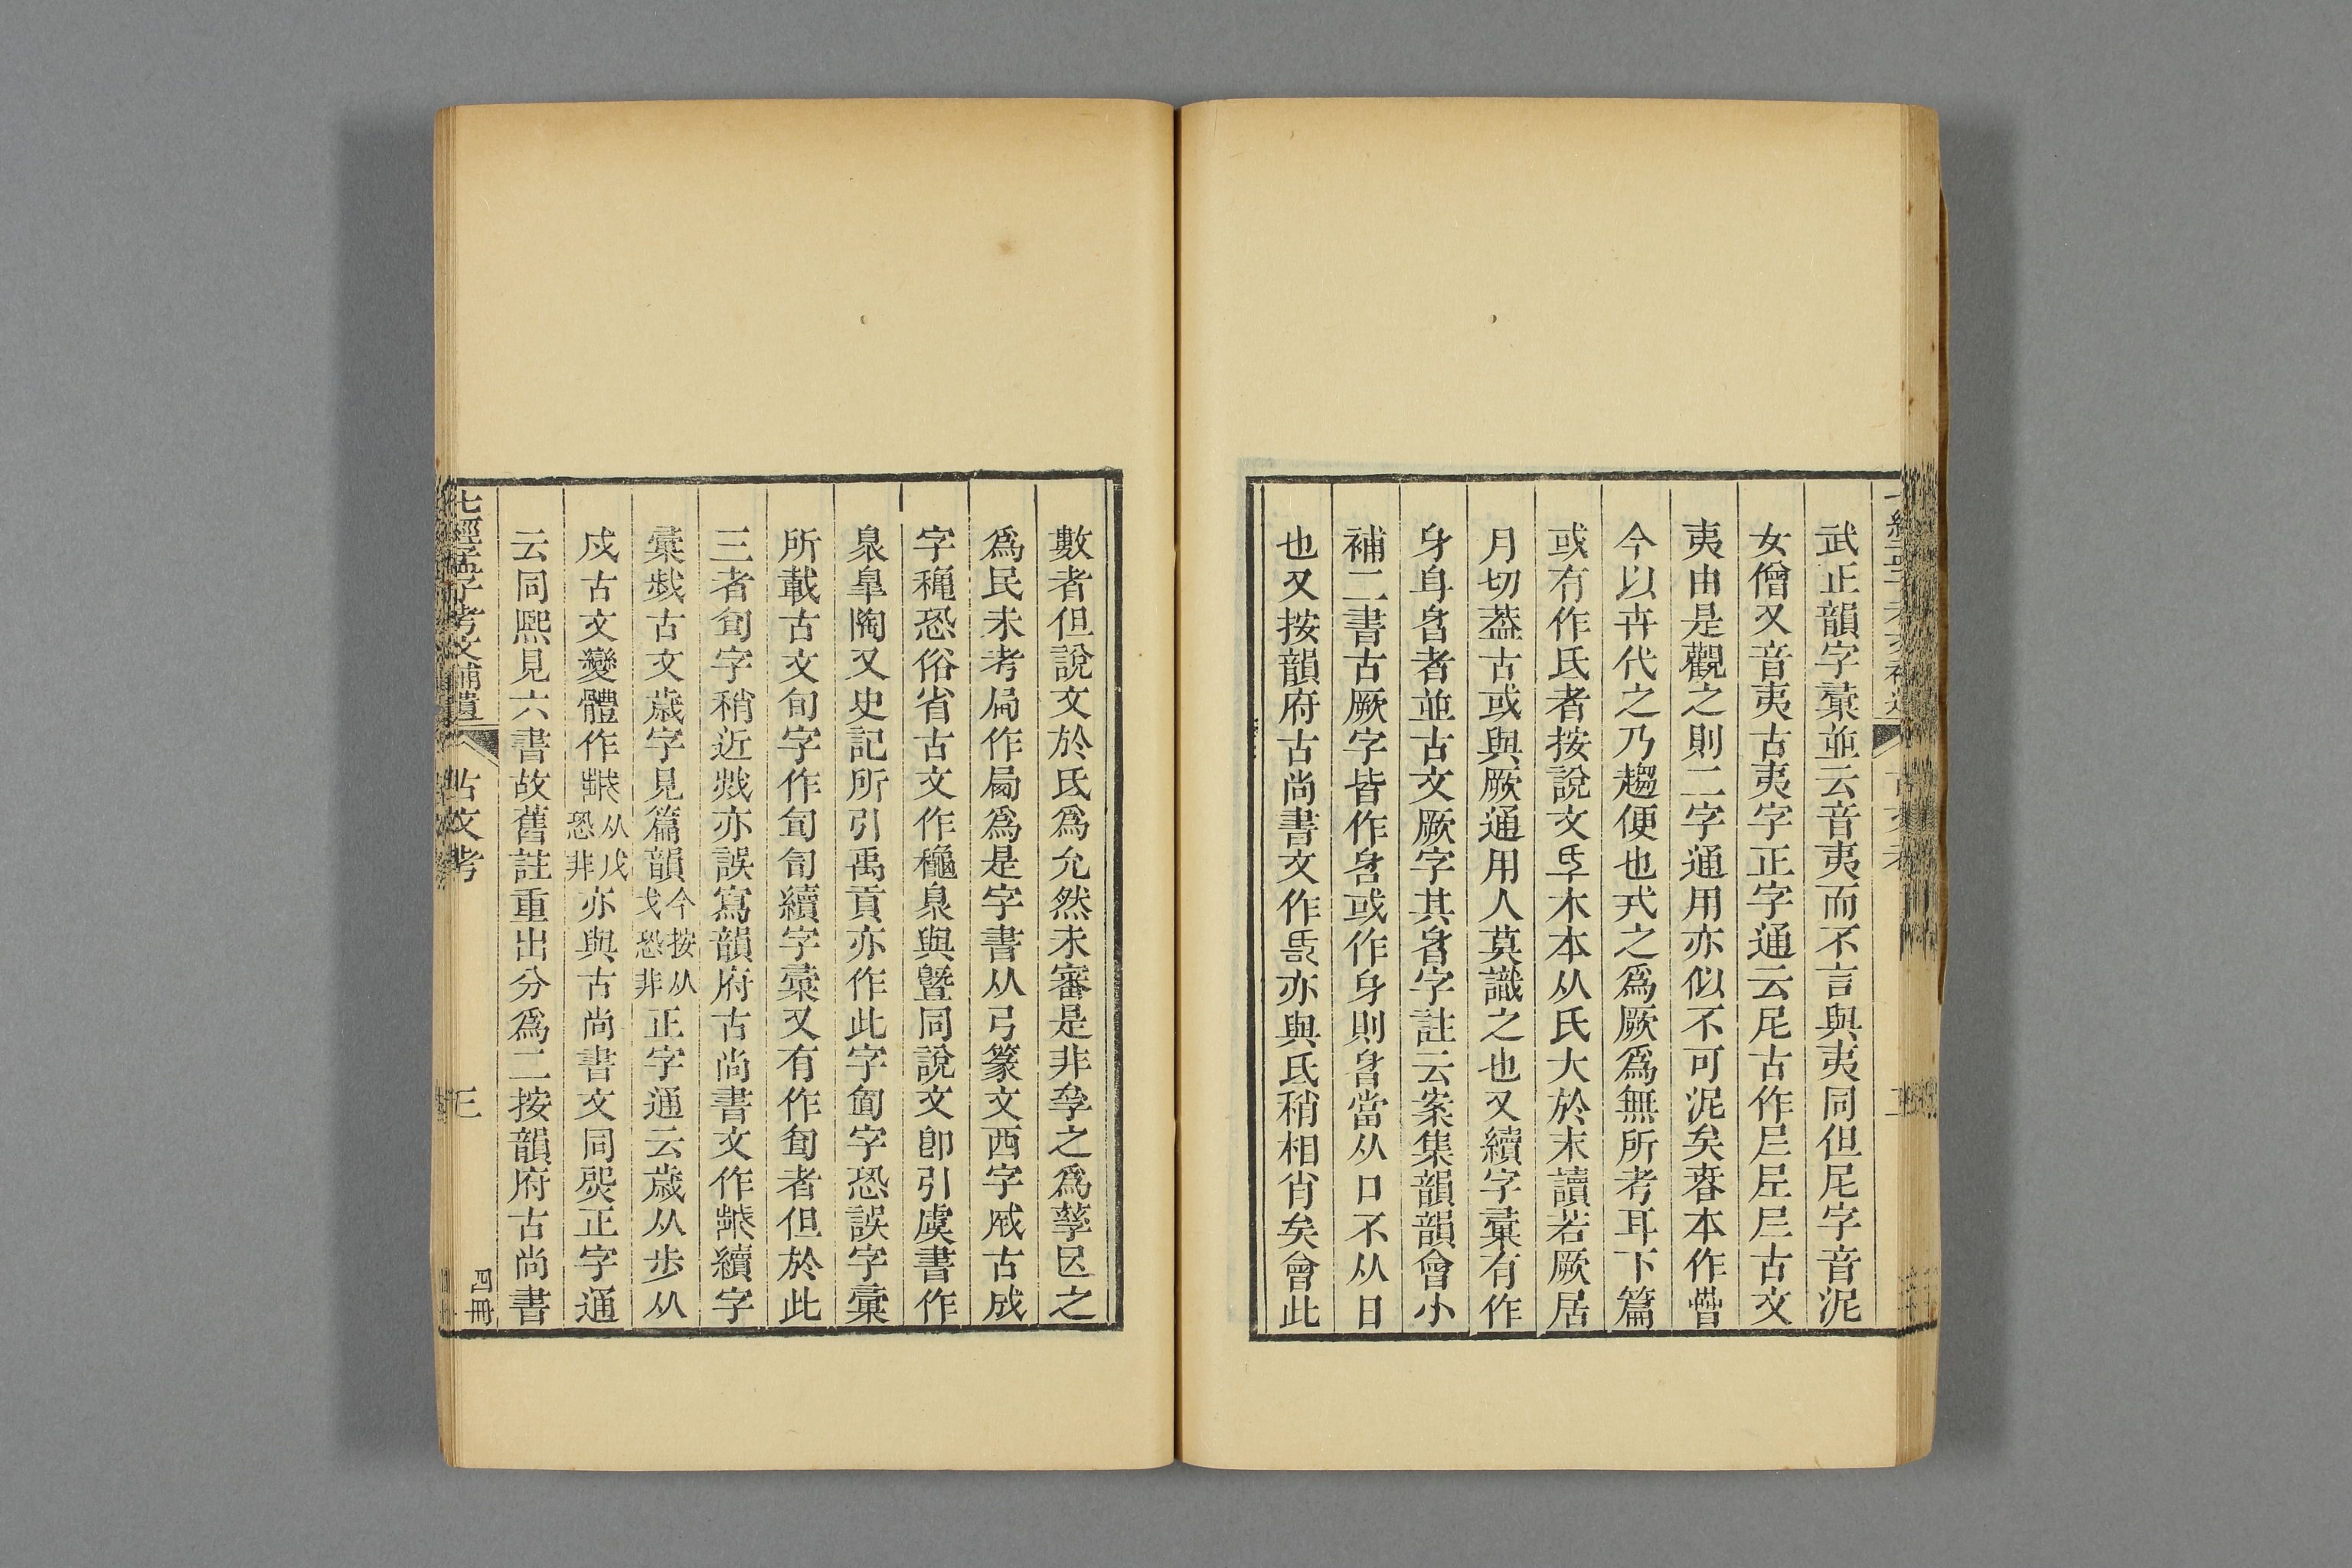 武正韻字彙並云音夷而不言與夷同但尼字音泥
女僧又音夷古夷字正字通云尼古作𡰥𡰥古文
夷由是觀之則二字通用亦似不可泥矣𣈤本作
今以卉代之乃趨便也弐之爲厥爲無所考耳下篇
或有作氏者按說文氒木本从氏大於末讀若厥居
月切葢古或與厥通用人莫識之也又續字彙有作
身者並古文厥字其字註云案集韻韻會小
補二書古厥字皆作或作身則當从口不从日
也又按韻府古尚書文作亦與氏稍相肖矣會此
數者但說文於氏爲允然未審是非𡥈之爲孶𡰱之
爲民未考𡱈作𡱈爲是字書从弓篆文西字𢧵古成
字𥤚恐俗省古文作𥤚臮與曁同說文卽引虞書作
臮臯陶又史記所引禹貢亦作此字㔯字恐誤字彙
所載古文旬字作㔯續字彙又有作者但於此
三者字稍近亦誤寫韻府古尚書文作續字
彙古文歲字見篇韻今按从戈恐非正字通云歲从步从
戍古文變體作从戊恐非亦與古尚書文同炗正字通
云同熙見六書故舊註重出分爲二按韻府古尚書
七經孟子考文補遺 古文考 三 四冊